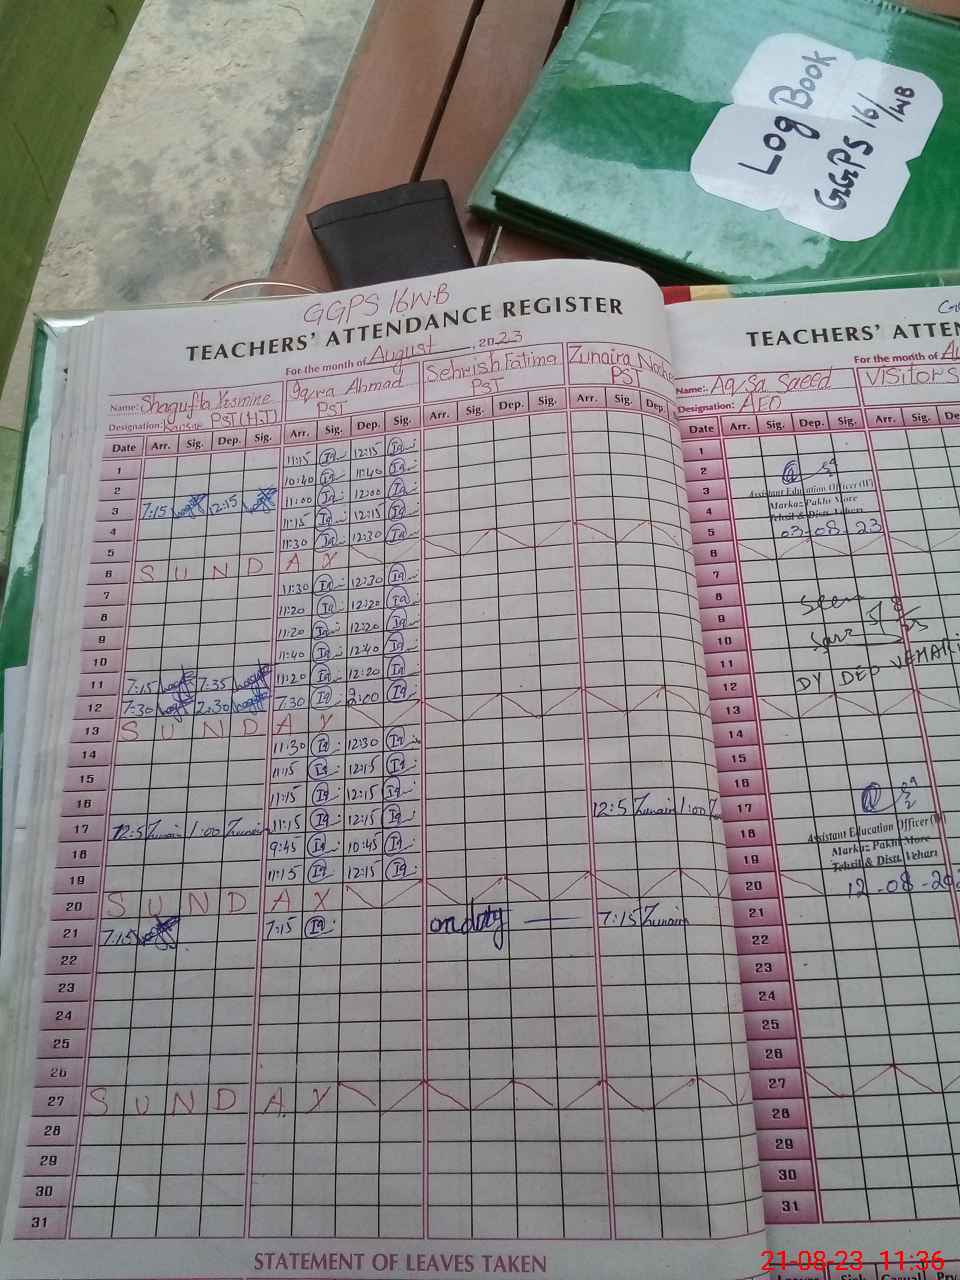 Log Book
GGPS 16/WB
GGPS 16 W.B
TEACHERS' ATTENDANCE REGISTER
For the month of August, 2023
Name: Shagufta Yasmine Iqra Ahmad Sehrish Fatima Zunaira
Designation: PST (H.T) PST PST PST
Date Arr. Sig. Dep. Sig. Arr. Sig. Dep. Sig. Arr. Sig. Dep. Sig. Arr. Sig. Dep.
1 11:15 Iq 12:15 Iq
2 10:40 Iq 11:40 Iq
3 7:15 12:15 11:00 Iq 12:00 Iq
4 11:15 Iq 12:15 Iq
5 11:30 Iq 12:30 Iq
6 S U N D A Y
7 11:30 Iq 12:30 Iq
8 11:20 Iq 12:20 Iq
9 11:20 Iq 12:20 Iq
10 11:40 Iq 12:40 Iq
11 7:15 7:35 11:20 Iq 12:20 Iq
12 7:30 2:30 7:30 Iq 2:00 Iq
13 S U N D A Y
14 11:30 Iq 12:30 Iq
15 11:15 Iq 12:15 Iq
16 11:15 Iq 12:15 Iq
17 12:5 Zunair 1:00 Zunair 11:15 Iq 12:15 Iq 12:5 Zunair 1:00
18 9:45 Iq 10:45 Iq
19 11:15 Iq 12:15 Iq
20 S U N D A Y
21 7:15 7:15 Iq on duty 7:15 Zunair
22
23
24
25
26
27 S U N D A Y
28
29
30
31
STATEMENT OF LEAVES TAKEN
TEACHERS' ATTEN
For the month of Au
Name: Aqsa Saeed Visitors
Designation: AEO
Date Arr. Sig. Dep. Sig. Arr. Sig.
1
2
3 Assistant Education Officer (W)
4 Markaz Pakhi More
Tehsil & Distt. Vehari
5 03-08-23
6
7
8 Seen
9
10
11
12 DY DEO VEHARI
13
14
15
16
17
18 Assistant Education Officer (W)
19 Markaz Pakhi More
Tehsil & Distt. Vehari
20 12-08-202
21
22
23
24
25
26
27
28
29
30
31
21-08-23 11:36